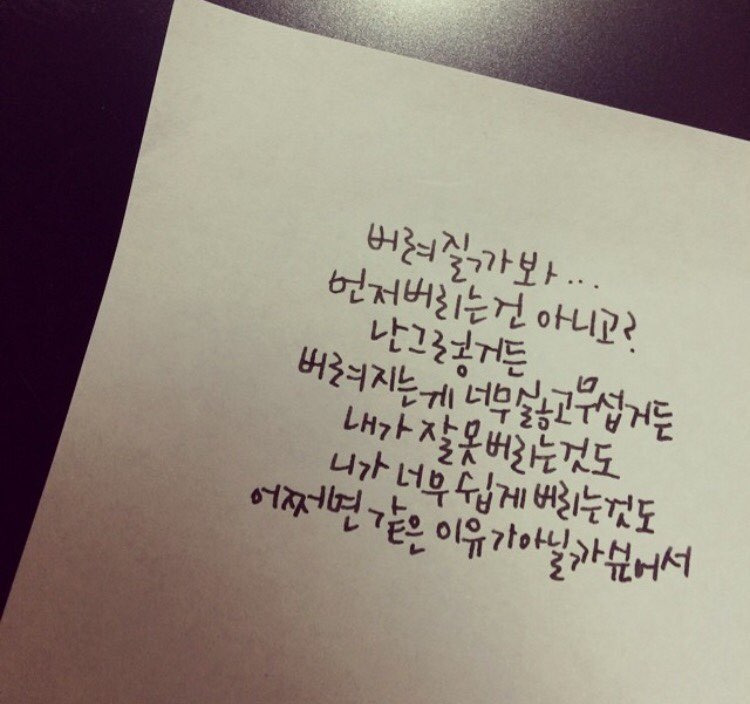 버려질까봐...
먼저버리는건 아니고?
난그렇거든
버려지는게 너무싫고무섭거든
내가 잘못버리는것도
니가 너무 쉽게 버리는것도
어쩌면 같은 이유가아닐까싶어서